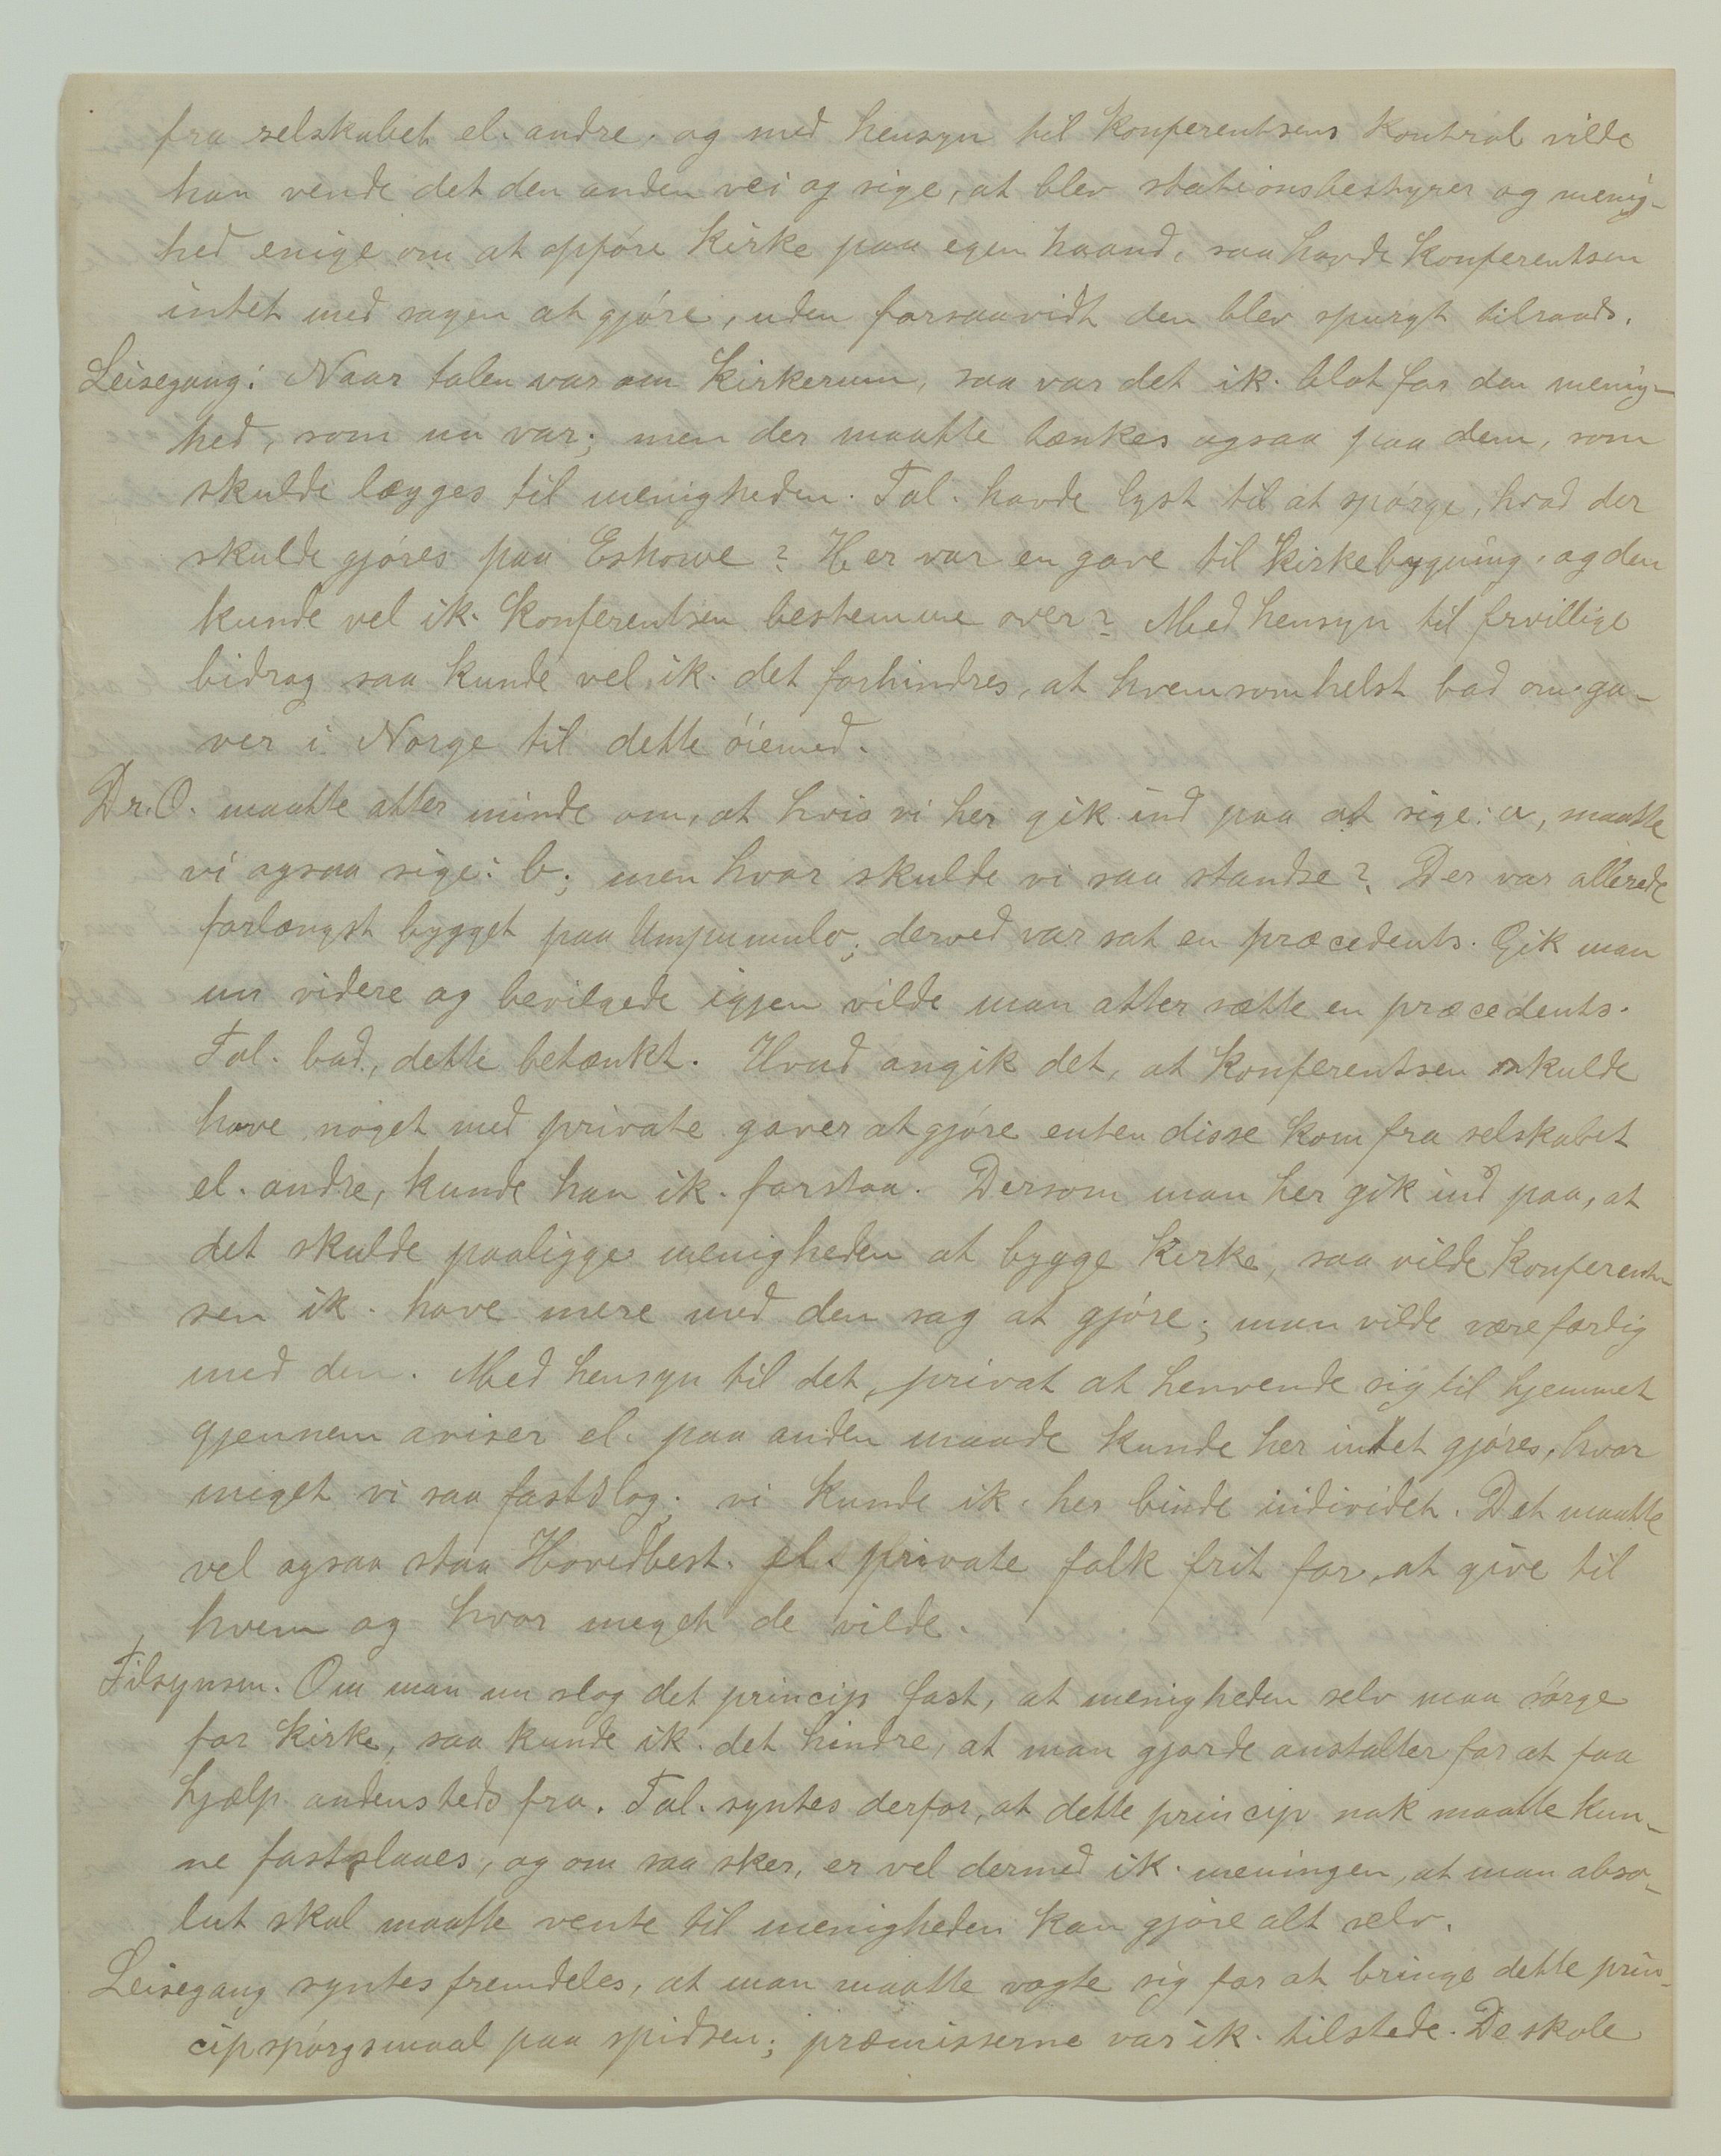 fra selskabet el. andre. og med hensyn til Konferentsens Kontrol vilde
han vende det den anden vei og sige, at blev stationsbestyrer og menig-
hed enige om at opføre Kirke paa egen haand, saa havde Konferentsen
intet med sagen at gjøre, uden forsaavidt den blev spurgt tilraads.
Leisegang: Naar talen var om Kirkerum, saa var det ik. blot for den menig-
hed, som nu var; men der maatte tænkes ogsaa paa dem, som
skulde lægges til menigheden. Tal. havde lyst til at spørge, hvad der
skulde gjøres paa Eshowe? Her var en gave til Kirkebygning, og den
kunde vel ik. Konferentsen bestemme over? Med hensyn til frvillige
bidrag saa kunde vel ik. det forhindres, at hvemsomhelst bad om ga-
ver i Norge til dette øiemed.
Dr. O. maatte atter minde om, at hvis vi her gik ind paa at sige: a, maatte
vi ogsaa sige: b; men hvor skulde vi saa standse? Der var allerede
forlængst bygget paa Umpumulo; derved var sat en præcedents. Gik man
nu videre og bevilgede igjen vilde man atter sætte en præcedents.
Tal. bad, dette betænkt. Hvad angik det, at Konferentsen skulde
have noget med private gaver at gjøre enten disse kom fra selskabet
el. andre, kunde han ik. forstaa. Dersom man her gik ind paa, at
det skulde paaligge menigheden at bygge Kirke, saa vilde Konferent-
sen ik. have mere med den sag at gjøre; man vilde være færdig
med den. Med hensyn til det, privat at henvende sig til hjemmet
gjennem aviser el. paa anden maade kunde her intet gjøres, hvor
meget vi saa fastslog; vi kunde ik. her binde individet. Det maatte
vel ogsaa staa Hovedbest. el. private folk frit for, at give til
hvem og hvor meget de vilde.
Tilsynsm. Om man nu slog det princip fast, at menigheden selv maa sørge
for Kirke, saa kunde ik. det hindre, at man gjorde anstalter for at faa
hjælp andensteds fra. Tal. syntes derfor, at dette princip nok maatte kun-
ne fastslaaes, og om saa sker, er vel dermed ik. meningen, at man abso-
lut skal maatte vente til menigheden kan gjøre alt selv.
Leisegang syntes fremdeles, at man maatte vogte sig for at bringe dette prin-
cipspørgsmaal paa spidsen; præmisserne var ik. tilstede. De skole